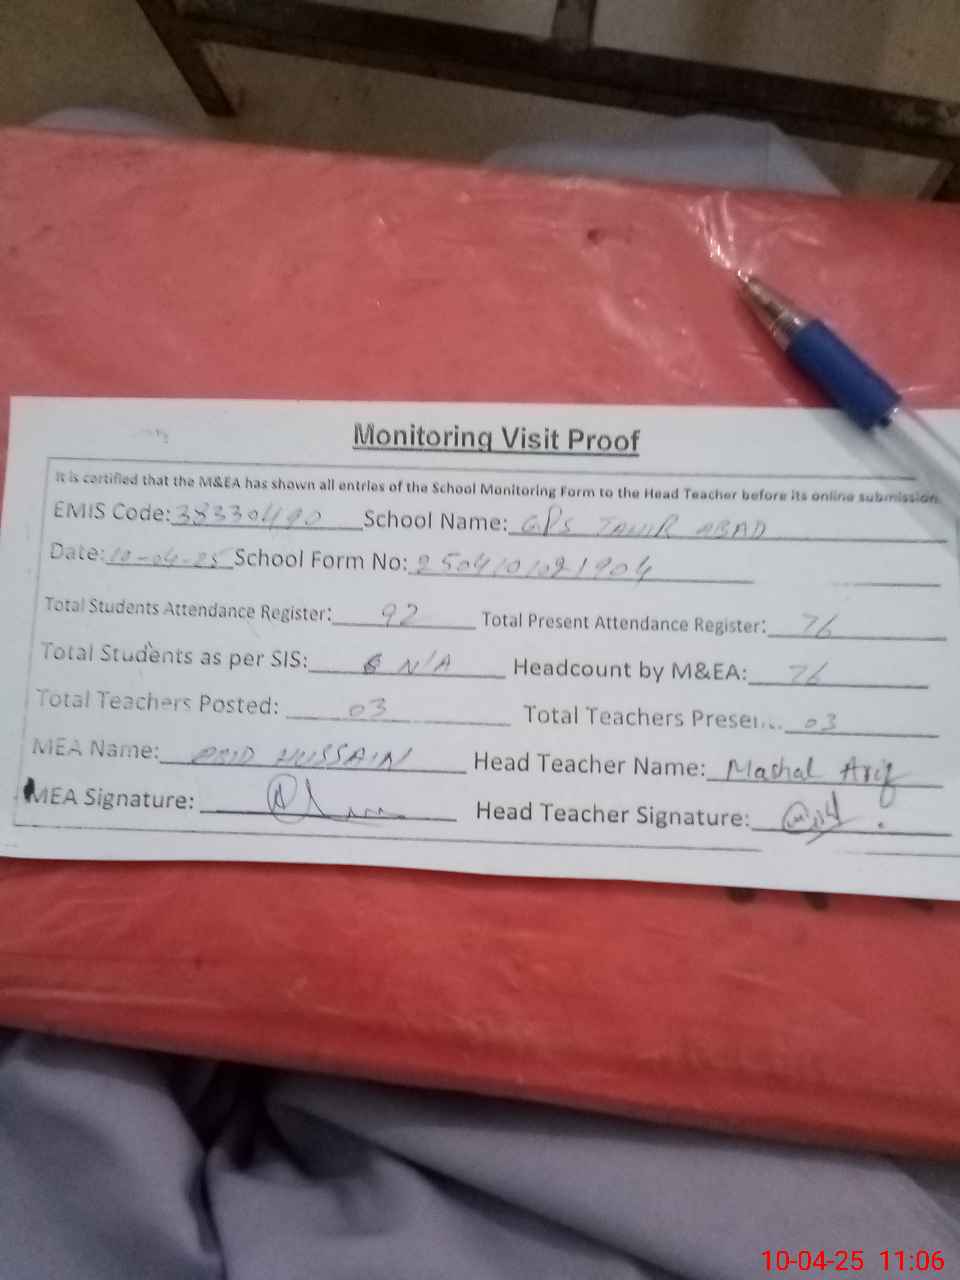 Monitoring Visit Proof
It is certified that the M&EA has shown all entries of the School Monitoring Form to the Head Teacher before its online submission.
EMIS Code: 38330490 School Name: GPS TAHIR ABAD
Date: 10-04-25 School Form No:
Total Students Attendance Register: 92 Total Present Attendance Register: 76
Total Students as per SIS: N/A Headcount by M&EA: 76
Total Teachers Posted: 03 Total Teachers Present: 03
MEA Name: HUSSAIN Head Teacher Name: Mashal Arif
MEA Signature: Head Teacher Signature:
10-04-25 11:06